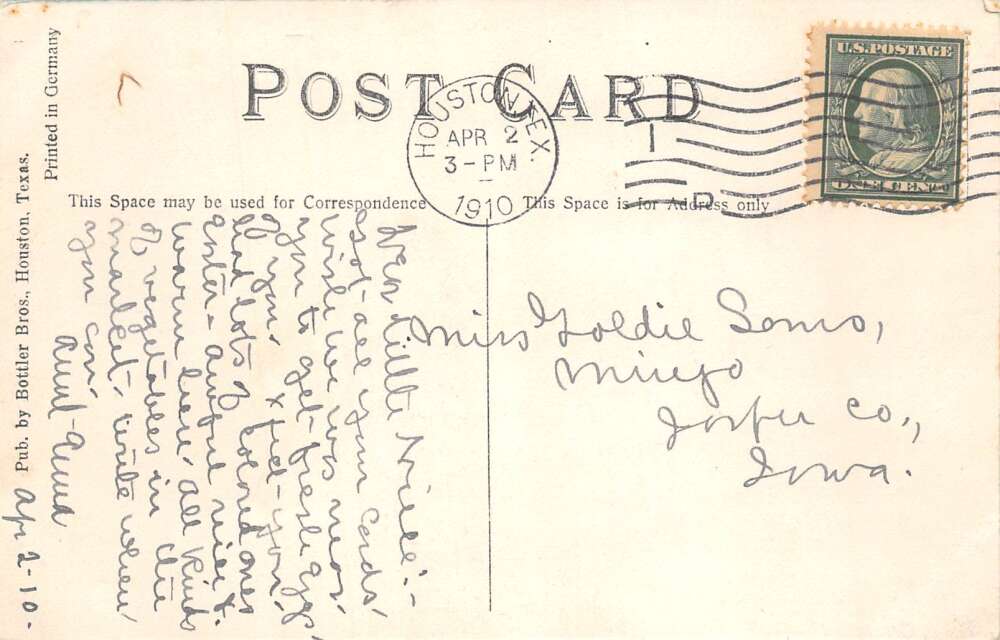 POST CARD
HOUSTON, TEX.
APR 2
3-PM
1910
U.S. POSTAGE
ONE CENT
This Space may be used for Correspondence
This Space is for Address only
Printed in Germany
Pub. by Bottler Bros., Houston, Texas.
Dear Little Niece:-
Got all your cards,
wish we was near
you to get fresh eggs
of you. & feed you.
Had lots of colord ones
Easter - awful nice &
warm here. all kinds
of vegetables in the
market. write when
you can.
Aunt
Apr 2-10.
Miss Goldie Sams,
Mingo
Jasper Co.,
Iowa.